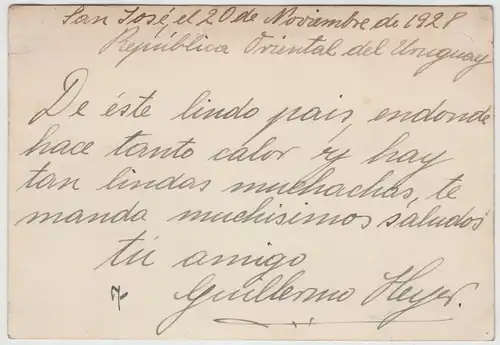 San José, el 20 de Noviembre de 1928
República Oriental del Uruguay
De éste lindo pais, endonde
hace tanto calor y hay
tan lindas muchachas, te
manda muchisimos saludos
tú amigo
Guillermo Heyer.